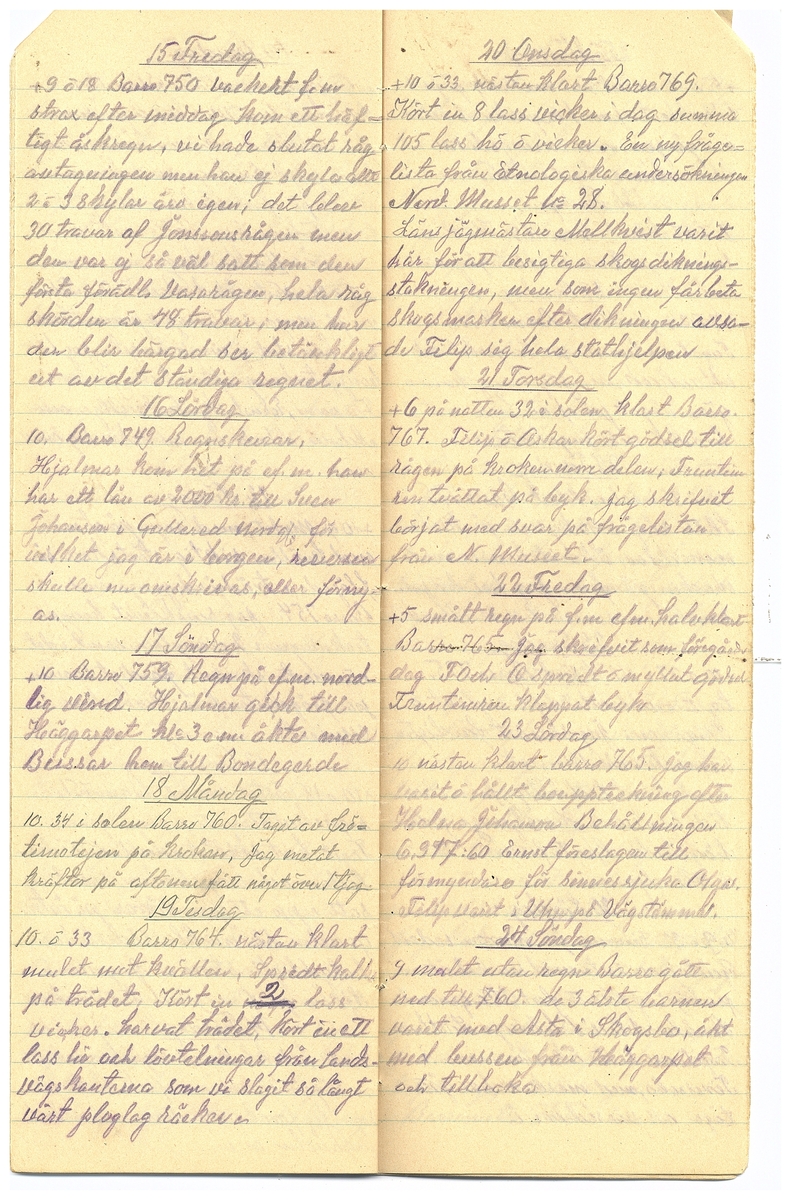 15 Fredag
+9 ö 18 Barro 750 vackert f.m
strax efter middag kom ett häf-
tigt åskregn, vi hade slutat råg
avtagningen men han ej skyla allt
2 ö 3 Skylar äro igen; det blev
30 travar af Jonssonsrågen men
den var ej så väl satt som den
första förädls Vasarågen, hela råg
skörden är 48 travar, men hur
den blir bärgad ser betänkligt
ut av det ständiga regnet.
16 Lördag
10. Barro 749. Regnskurar,
Hjalmar kom hit på ef.m. han
har ett lån av 2000 kr. till Sven
Johanson i Gullered för
vilket jag är i borgen, reversen
skulle nu omskrivas, eller förny-
as.
17 Söndag
+10 Barro 759. Regn på ef.m. nord-
lig vind. Hjalmar gick till
Häggarpet kl 3 em åkte med
Bussar hem till Bondegerde
18 Måndag
10. 34 i solen Barro 760. Tagit av frö-
timotejen på kroken, Jag metat
kräftor på aftonen fått något över 1 tjog
19 Tisdag
10. ö 33 Barro 764. nästan klart
mulet mot kvällen, Spridt kalk
på trädet, Kört in 2 lass
vicker. harvat trädet, Kört in ett
lass hö och lövtelningar från lands-
vägskanterna som vi slagit så långt
vårt ploglag räcker
20 Onsdag
+10 ö 33 nästan klart Barro 769.
Kört in 8 lass vicker i dag summa
105 lass hö ö vicker. En ny fråge-
lista från Etnologiska undersökningen
Nord. Musset No 28.
Länsjägmästare Mellkvist varit
här för att besigtiga skogsdiknings-
stakningen, men som ingen får beta
skogsmarken efter dikningen avsa-
de Filip sig hela stathjelpen
21 Torsdag
+6 på natten 32 i solen klart Barro.
767. Filip ö Oskar kört gödsel till
rågen på kroken norra delen; Fruntim
ren tvättat på byk. jag skrifvit
börjat med svar på frågelistan
från N. Museet.
22 Fredag
+5 smått regn på f.m ef.m. halvklart
Barro 765 Jag skrifvit som förgånd
dag F och O spridt ö myllat gödsel
Fruntimren klappat byk
23 Lördag
10 nästan klart barro 765. jag har
varit ö hållt boupptekning efter
Helna Johanson Behållningen
6,317.60 Ernst föreslagen till
förmyndare för sinnessjuka Olga.
Filip varit i Upp på Vägtömmel.
24 Söndag
9 mulet utan regn Barro gått
ned till 760. de 3 älste barnen
varit med Asta i Skogsbo, åkt
med bussen från Häggarpet
och tillbaka